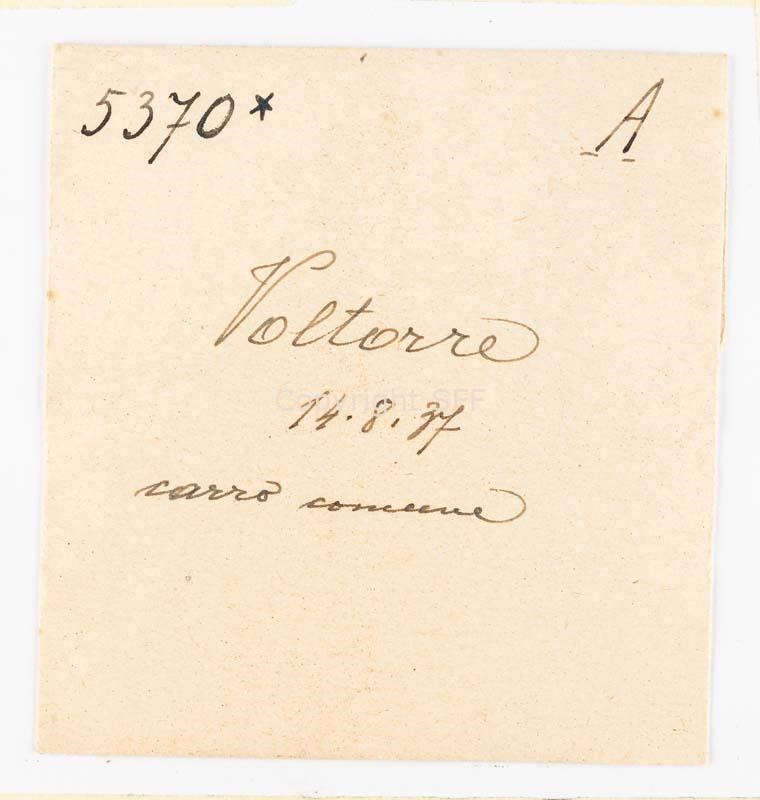 5370* A
Voltorre
14.8.37
carro comune
Copyright SFF